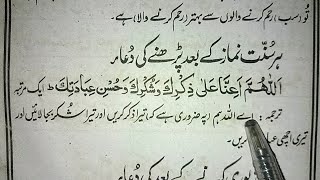 تُو (سب) رحم کرنے والوں سے بہتر (رحم کرنے والا) ہے۔
ہر سُنّت نماز کے بعد پڑھنے کی دُعاء
اَللّٰهُمَّ اَعِنَّا عَلٰى ذِكْرِكَ وَشُكْرِكَ وَحُسْنِ عِبَادَتِكَ ط ایک مرتبہ
ترجمہ: اے اللہ ہم پہ ضروری ہے کہ، تیرا ذکر کریں اور تیرا شکر بجا لائیں اور
تیری اچھی کریں۔
کے بعد کی دُعاء